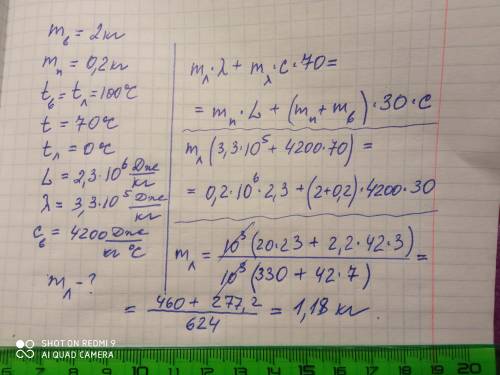 m_в = 2 кг
m_п = 0,2 кг
t_в = t_л = 100°C
t = 70°C
t_л = 0°C
L = 2,3·10⁶ Дж/кг
λ = 3,3·10⁵ Дж/кг
c_в = 4200 Дж/кг °C
m_л - ?
m_л·λ + m_л·c·70 =
= m_п·L + (m_п + m_в)·30·c
m_л(3,3·10⁵ + 4200·70) =
= 0,2·10⁶·2,3 + (2+0,2)·4200·30
m_л = 10³(20·23 + 2,2·42·3) / 10³(330 + 42·7) =
= 460 + 277,2 / 624 = 1,18 кг
SHOT ON REDMI 9
AI QUAD CAMERA
6 7 8 9 10 11 12 13 14 15 16 17 18 19 20